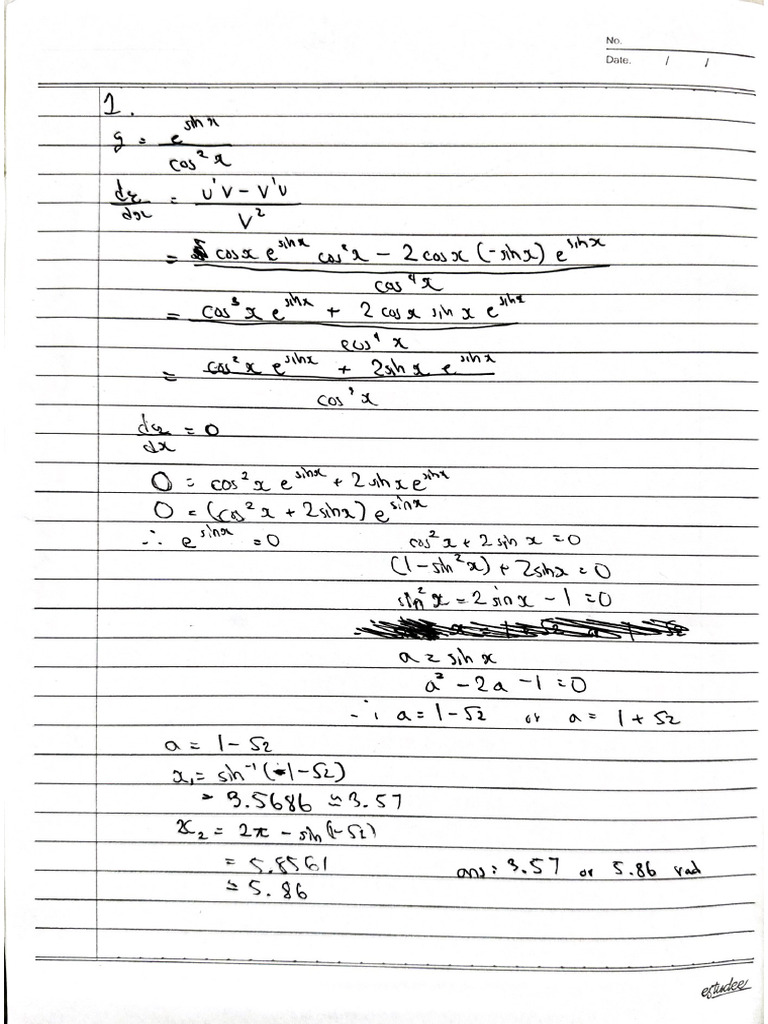 No.
Date. / /
1.
y = e^{sin x} / cos² x
dy/dx = (u'v - v'u) / v²
= (cosx e^{sinx} cos²x - 2 cosx (-sinx) e^{sinx}) / cos⁴x
= (cos³ x e^{sinx} + 2 cosx sin x e^{sinx}) / cos⁴ x
= (cos² x e^{sinx} + 2sin x e^{sinx}) / cos³ x
dy/dx = 0
0 = cos² x e^{sinx} + 2 sin x e^{sinx}
0 = (cos² x + 2sinx) e^{sinx}
∴ e^{sinx} = 0 cos² x + 2 sin x = 0
(1 - sin² x) + 2sinx = 0
sin² x - 2 sinx - 1 = 0
a = sin x
a² - 2a - 1 = 0
∴ a = 1 - √2 or a = 1 + √2
a = 1 - √2
x₁ = sin⁻¹ (1 - √2)
= 3.5686 ≈ 3.57
x₂ = 2π - sin(1-√2)
= 5.8561 ans: 3.57 or 5.86 rad
≈ 5.86
estudee